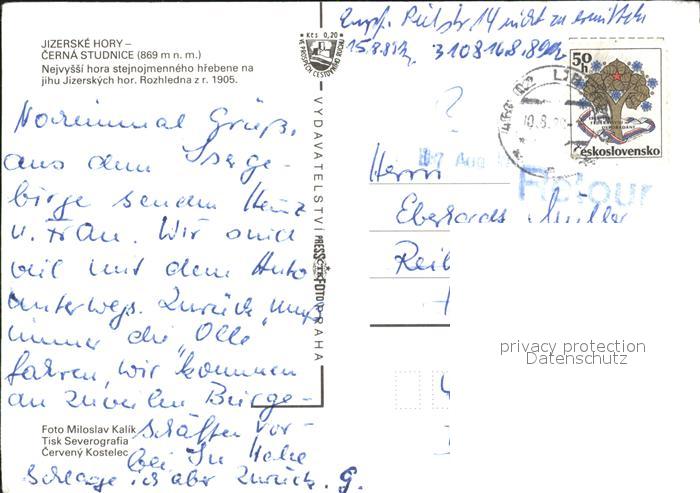 JIZERSKÉ HORY –
ČERNÁ STUDNICE (869 m n. m.)
Nejvyšší hora stejnojmenného hřebene na
jihu Jizerských hor. Rozhledna z r. 1905.
Kčs 0,20
Nocheinmal Grüße
aus dem Iserge-
birge senden Heinz
u. Frau. Wir sind
viel mit dem Auto
unterwegs. Zurück muß
immer die "Olle"
fahren, wir kommen
an zuvielen Bierge-
schäften vor-
bei. In Hohe
schlage ich aber zurück. G.
Foto Miloslav Kalík
Tisk Severografia
Červený Kostelec
VYDAVATELSTVÍ PRESSFOTO PRAHA
Empf. 14 nicht zu ermitteln
15.8.89
50h
Československo
Retour
Herrn
Eberhard Müller
Reil
privacy protection
Datenschutz